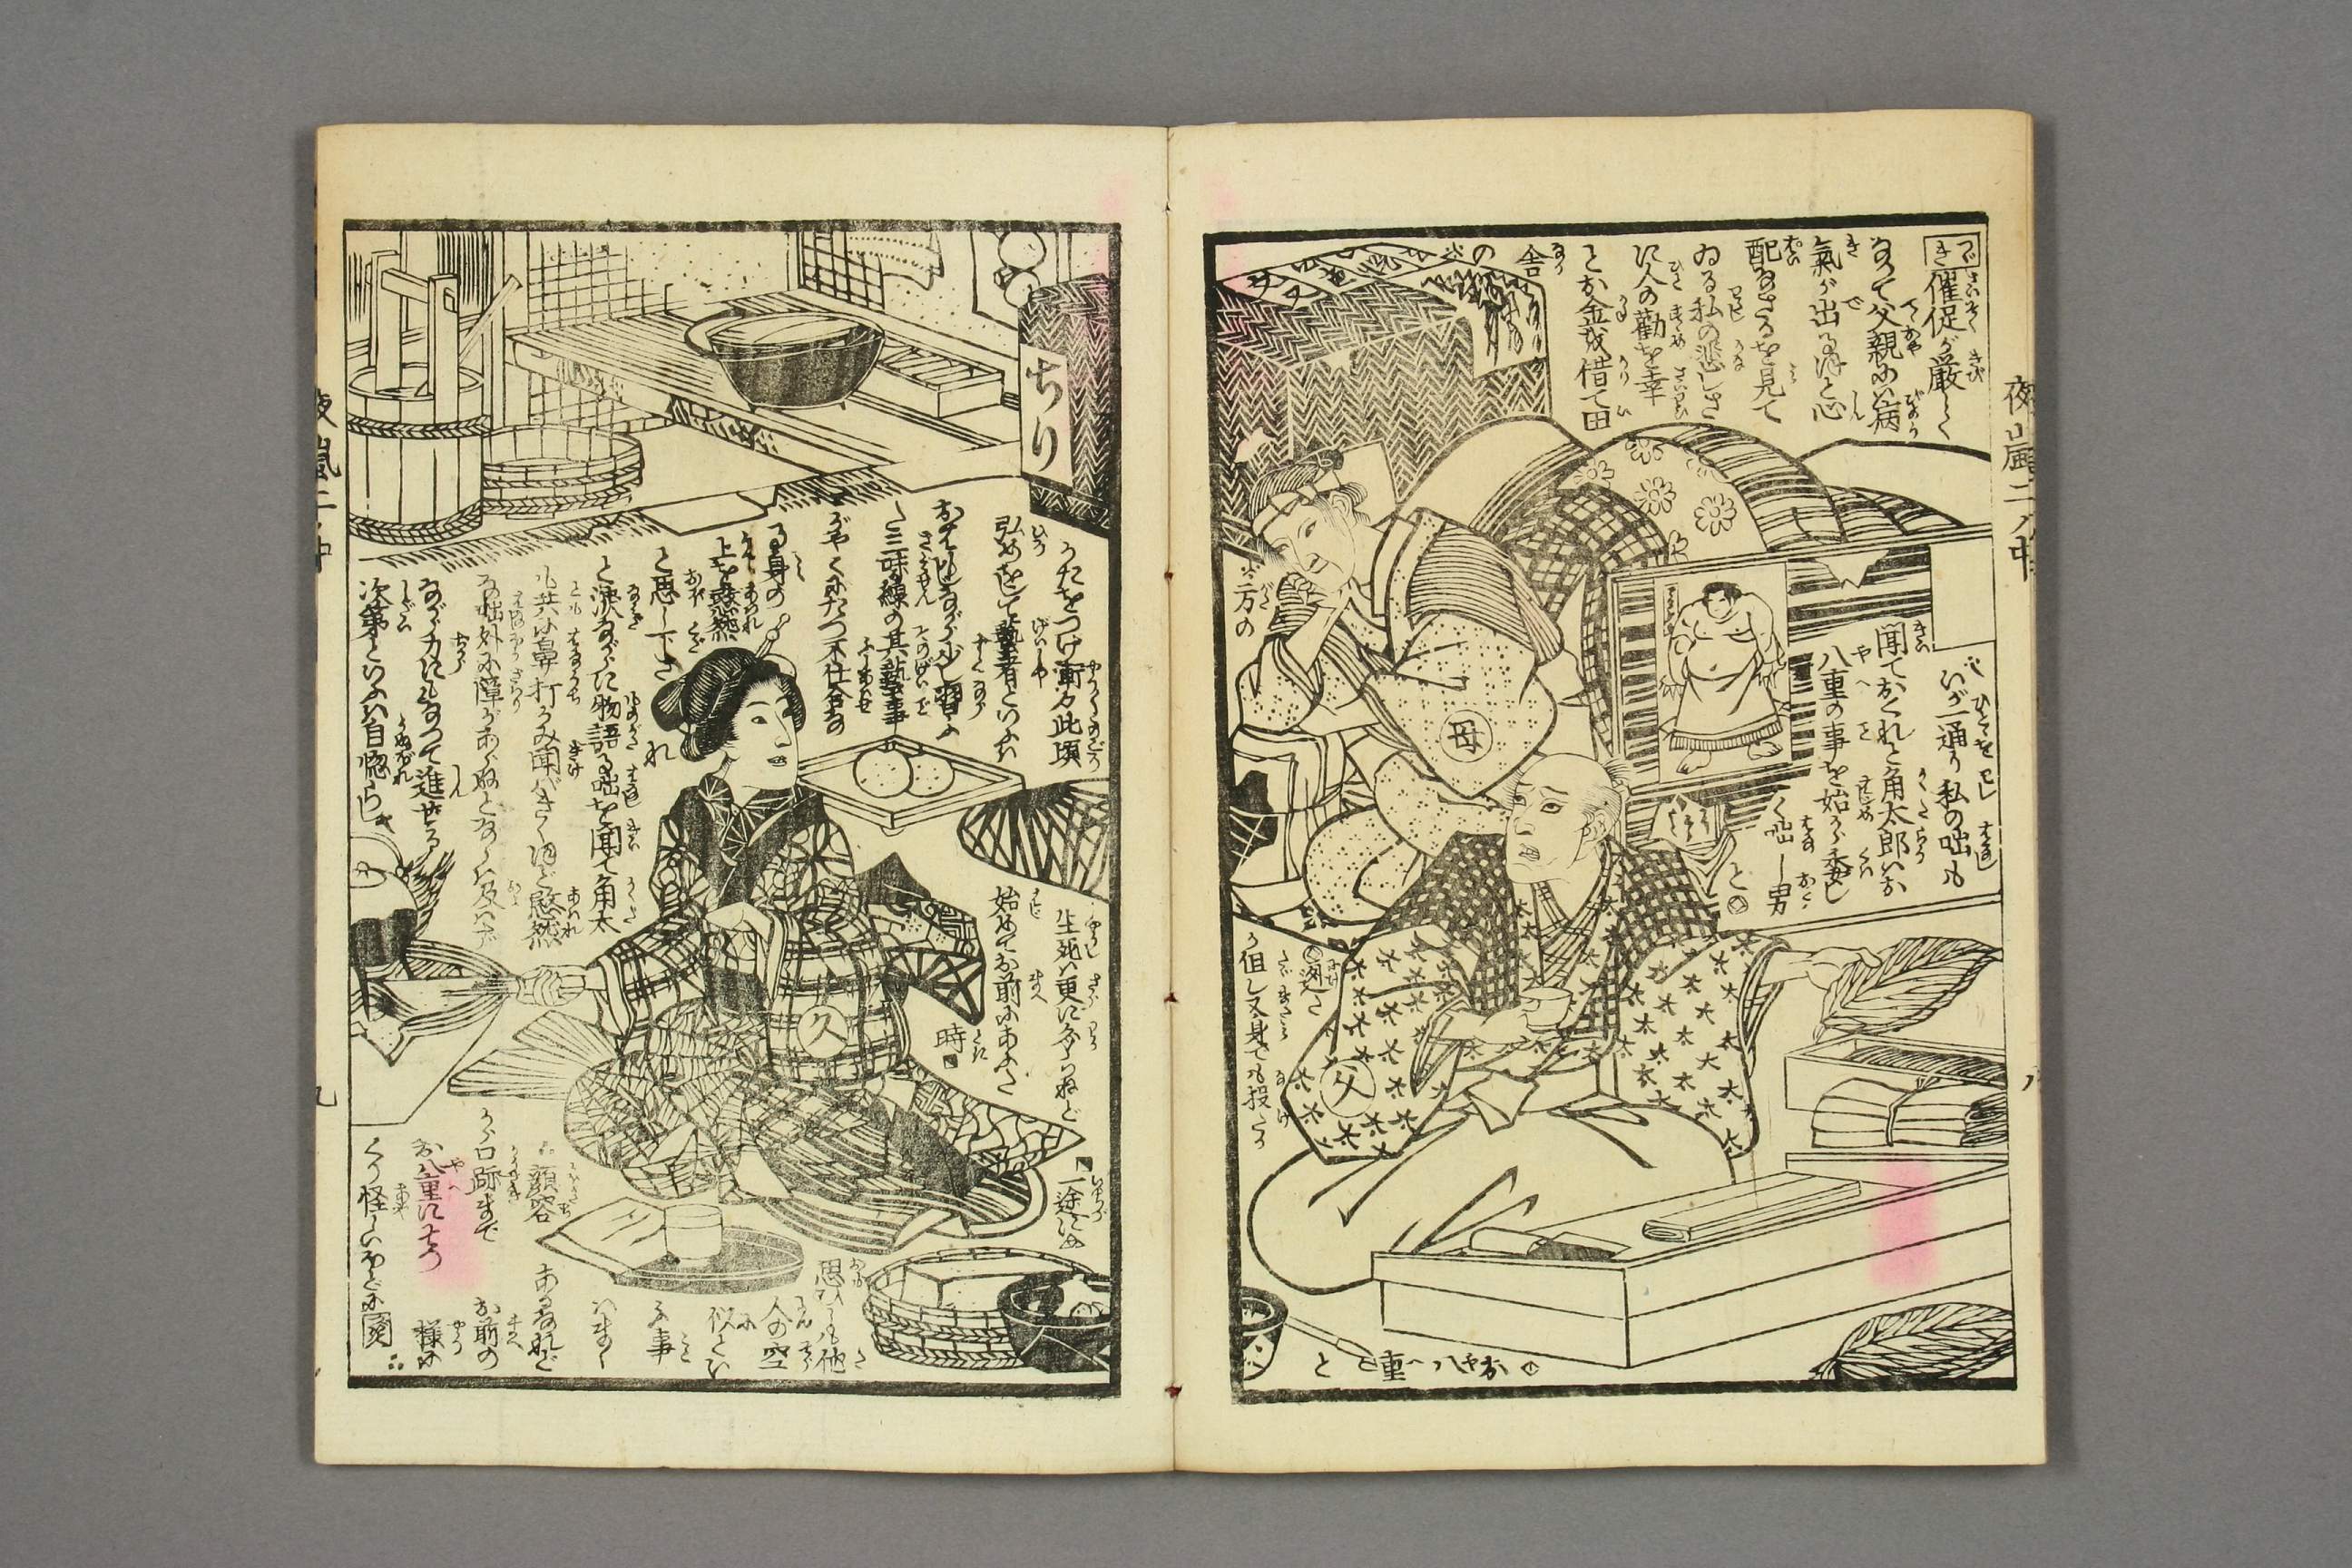 つゞき
催促が厳しく
なつて父親は病
氣が出る程と心
配なさるを見て
ゐる私の悲しさ
に人の勧を幸
とお金を借て田
舎
の
方の
いが一通り私の咄も
聞ておくれと角太郎はお
八重の事を始から委し
く咄し男
と
り但し又身でも投たか
お八重
と
母
父
夜嵐二ノ中
うたをつけ漸々此頃
弘めをして藝者といふは
た三味線の其藝事
がやくにたつ不仕合な
る身の
上を愍然
と思し下さ
れ
と涙ながらに物語る咄を聞て角太
も共に鼻打かみ聞ばきく程愍然
な咄外に障りがあらぬとならば及ばず
ながら力にもなつて進せる
次第といふは自惚らしき
ちり
久
生死は更に分らねど
始めてお前にあふた
時
一途に
思ひしも他
人の空
似とい
ふ事
はまゝ
あるなれど
顔容
から口跡まで
お前の
お八重にそつ
様に
くり怪しいほどに図
夜嵐二ノ中
九